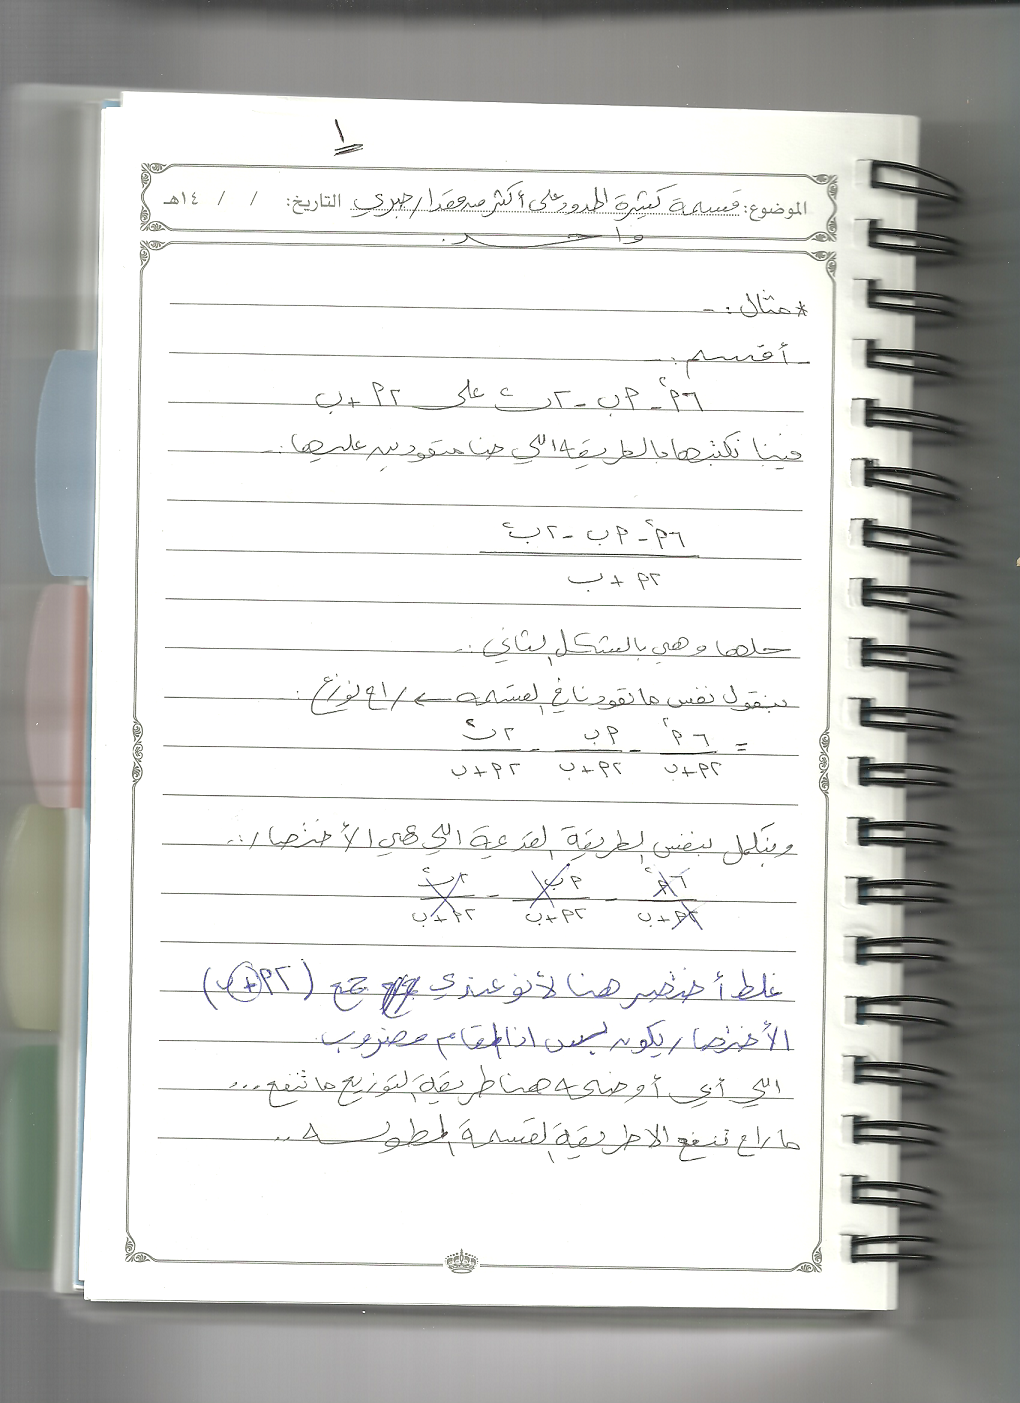 ١
الموضوع: قسمة كثيرة الحدود على أكثر من مقدار جبري التاريخ: / / ١٤هـ
واحد.
* مثال :-
- أقسم :-
٦أ٢ - أب - ٢ب٢ على ٢أ + ب
فينا نكتبها بالطريقة اللي حنا متعودين عليها :-
٦أ٢ - أب - ٢ب٢
٢أ + ب
حلها وهي بالشكل الثاني :-
بنقول نفس ما تعودنا في القسمة ← راح نوزع .
= ٦أ٢ - أب - ٢ب٢
٢أ+ب ٢أ+ب ٢أ+ب
ونكمل بنفس الطريقة القدعية اللي هي الأختصار :-
٦أ٢ - أب - ٢ب٢
٢أ+ب ٢أ+ب ٢أ+ب
غلط أختصر هنا لأنو عندي جمع (٢أ+ب)
الأختصار يكون بس اذا المقام مضروب
اللي أبي أوضحه هنا طريقة التوزيع ما تنفع ...
ما راح تنفع الا طريقة القسمة المطوله ..